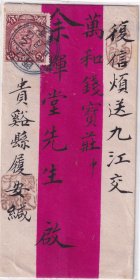 復信煩送九江交
萬和錢寶莊中
余輝堂先生 啟
貴谿縣復安緘